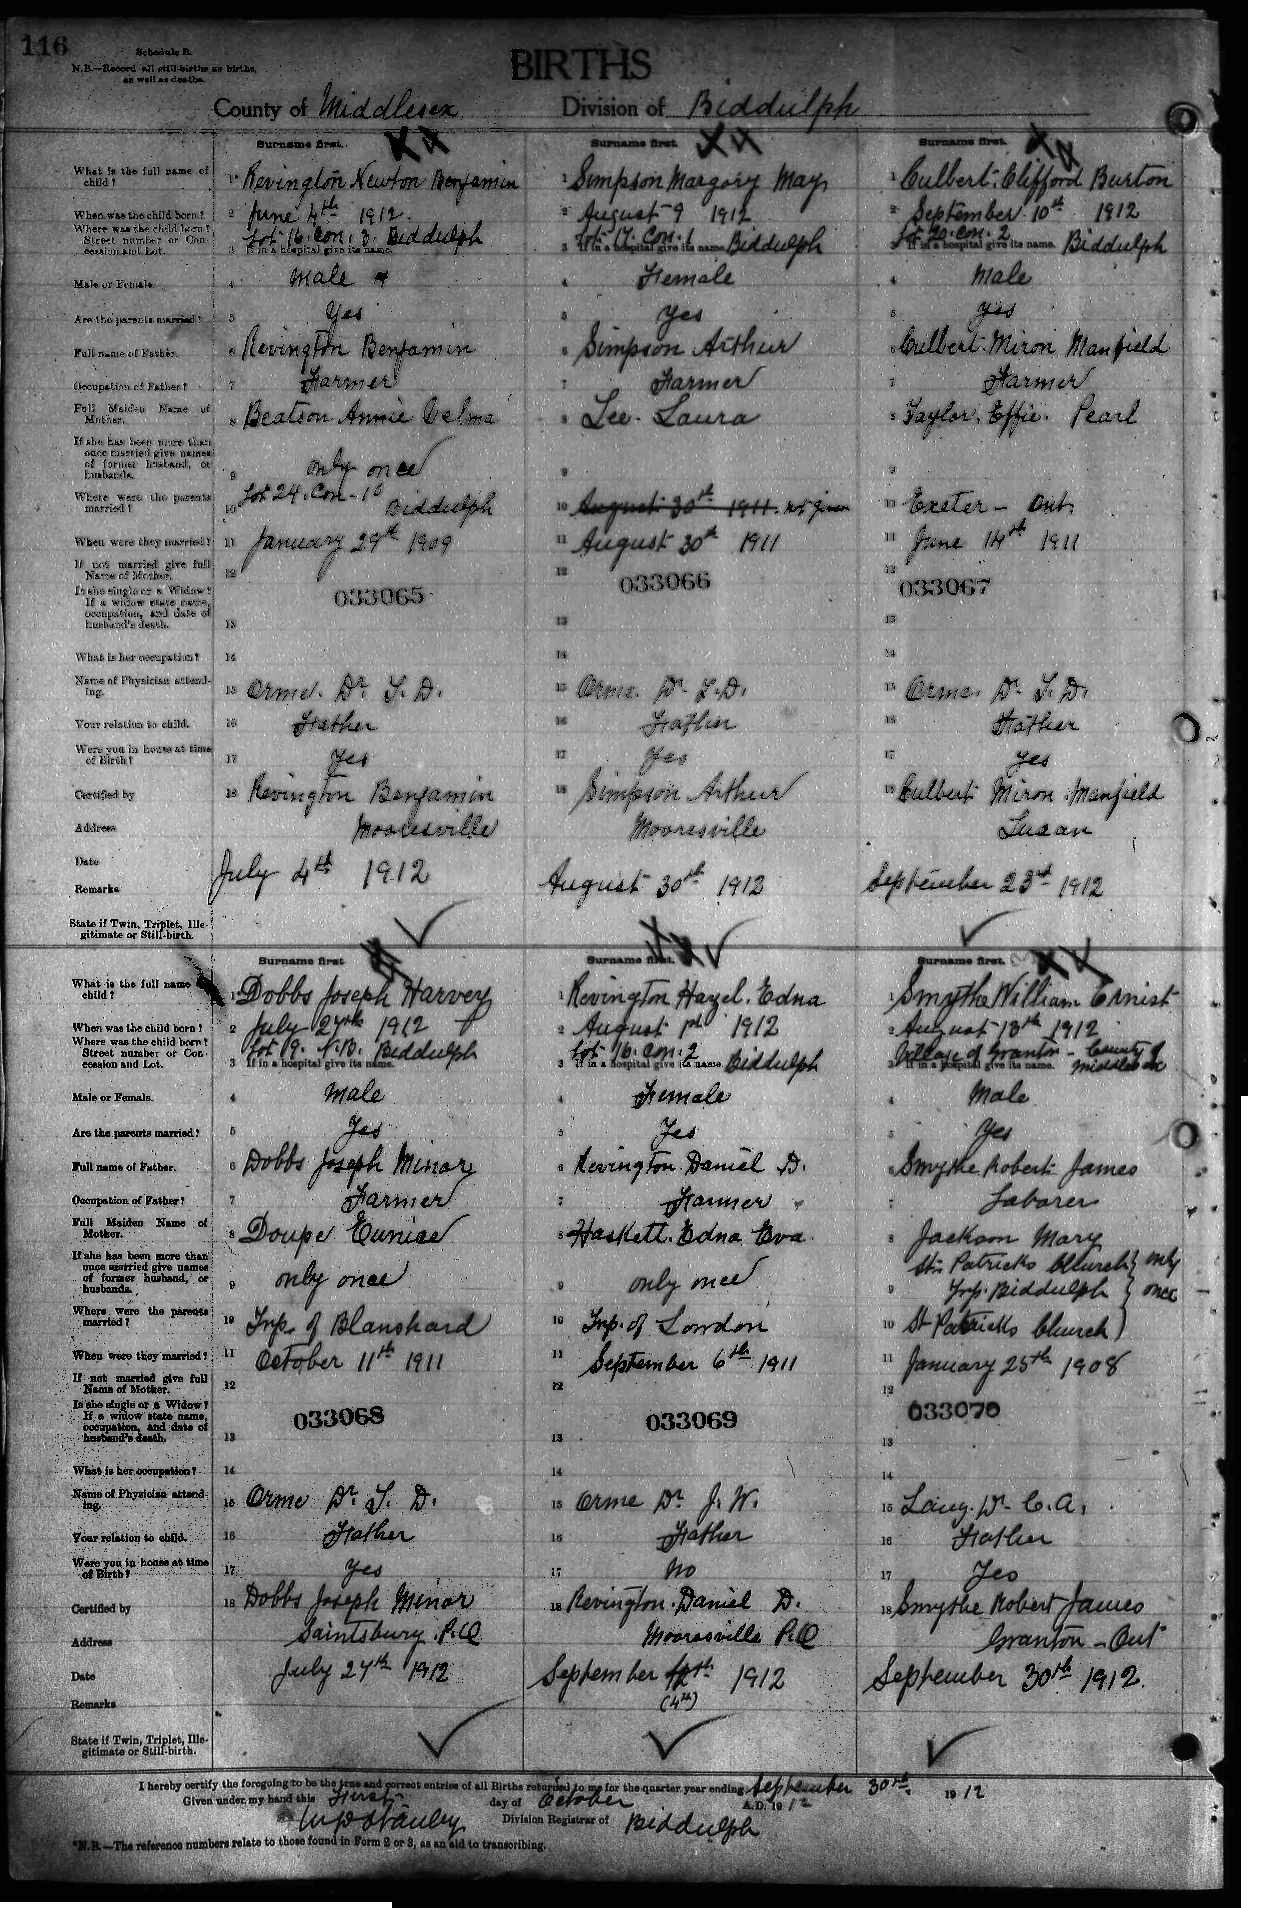 116
Schedule B.
N.B.—Record all still-births as births,
as well as deaths.
BIRTHS
County of Middlesex Division of Biddulph
Surname first. Surname first. Surname first.
What is the full name of child? 1 Revington Newton Benjamin 1 Simpson Margory May 1 Culbert. Clifford Burton
When was the child born? 2 June 4th 1912. 2 August 9 1912 2 September 10th 1912
Where was the child born? Street number or Concession and Lot. 3 If in a hospital give its name. Lot 16. Con. 3. Biddulph 3 If in a hospital give its name. Lot 17. Con. 1 Biddulph 3 If in a hospital give its name. Lot 20. Con. 2 Biddulph
Male or Female 4 Male 4 Female 4 Male
Are the parents married? 5 Yes 5 Yes 5 Yes
Full name of Father. 6 Revington Benjamin 6 Simpson Arthur 6 Culbert. Miron Manfield
Occupation of Father? 7 Farmer 7 Farmer 7 Farmer
Full Maiden Name of Mother. 8 Beatson Annie Delma 8 Lee. Laura 8 Taylor. Effie. Pearl
If she has been more than once married give names of former husband, or husbands. 9 only once 9 9
Where were the parents married? 10 Lot 24. Con-10 Biddulph 10 August 30th 1911. not given 10 Exeter - Ont.
When were they married? 11 January 29th 1909 11 August 30th 1911 11 June 14th 1911
If not married give full Name of Mother. 12 12 12
Is she single or a Widow? If a widow state name, occupation, and date of husband's death. 13 033065 13 033066 13 033067
What is her occupation? 14 14 14
Name of Physician attending. 15 Orme. Dr. T. D. 15 Orme. Dr. T. D. 15 Orme. Dr. T. D.
Your relation to child. 16 Father 16 Father 16 Father
Were you in house at time of Birth? 17 Yes 17 Yes 17 Yes
Certified by 18 Revington Benjamin 18 Simpson Arthur 18 Culbert Miron Manfield
Address Mooresville Mooresville Lucan
Date July 4th 1912 August 30th 1912 September 23rd 1912
Remarks
State if Twin, Triplet, Illegitimate or Still-birth.
Surname first. Surname first. Surname first.
What is the full name child? 1 Dobbs Joseph Harvey 1 Revington Hazel. Edna 1 Smythe William Ernist
When was the child born? 2 July 27th 1912 2 August 1st 1912 2 August 13th 1912
Where was the child born? Street number or Concession and Lot. 3 If in a hospital give its name. Lot 19. N.B. Biddulph 3 If in a hospital give its name. Lot 16. Con. 2 Biddulph 3 If in a hospital give its name. Village of Granton - County of Middlesex
Male or Female. 4 Male 4 Female 4 Male
Are the parents married? 5 Yes 5 Yes 5 Yes
Full name of Father. 6 Dobbs Joseph Minor 6 Revington Daniel D. 6 Smythe Robert James
Occupation of Father? 7 Farmer 7 Farmer 7 Laborer
Full Maiden Name of Mother. 8 Doupe Eunice 8 Haskett. Edna Eva. 8 Jackson Mary
If she has been more than once married give names of former husband, or husbands. 9 only once 9 only once 9 St. Patricks Church Twp. Biddulph } only once
Where were the parents married? 10 Twp. of Blanshard 10 Twp. of London 10 St Patricks Church)
When were they married? 11 October 11th 1911 11 September 6th 1911 11 January 25th 1908
If not married give full Name of Mother. 12 12 12
Is she single or a Widow? If a widow state name, occupation, and date of husband's death. 13 033068 13 033069 13 033070
What is her occupation? 14 14 14
Name of Physician attending. 15 Orme Dr. T. D. 15 Orme Dr. J. W. 15 Lang. Dr. C. A.
Your relation to child. 16 Father 16 Father 16 Father
Were you in house at time of Birth? 17 Yes 17 No 17 Yes
Certified by 18 Dobbs Joseph Minor 18 Revington. Daniel D. 18 Smythe Robert James
Address Saintsbury. P.O Mooresville P.O Granton - Ont
Date July 27th 1912 September (4th) 1912 September 30th 1912.
Remarks
State if Twin, Triplet, Illegitimate or Still-birth.
I hereby certify the foregoing to be the true and correct entries of all Births returned to me for the quarter year ending September 30th. 1912
Given under my hand this First day of October A.D. 1912
W D Stanley Division Registrar of Biddulph
*N.B.—The reference numbers relate to those found in Form 2 or 3, as an aid to transcribing.